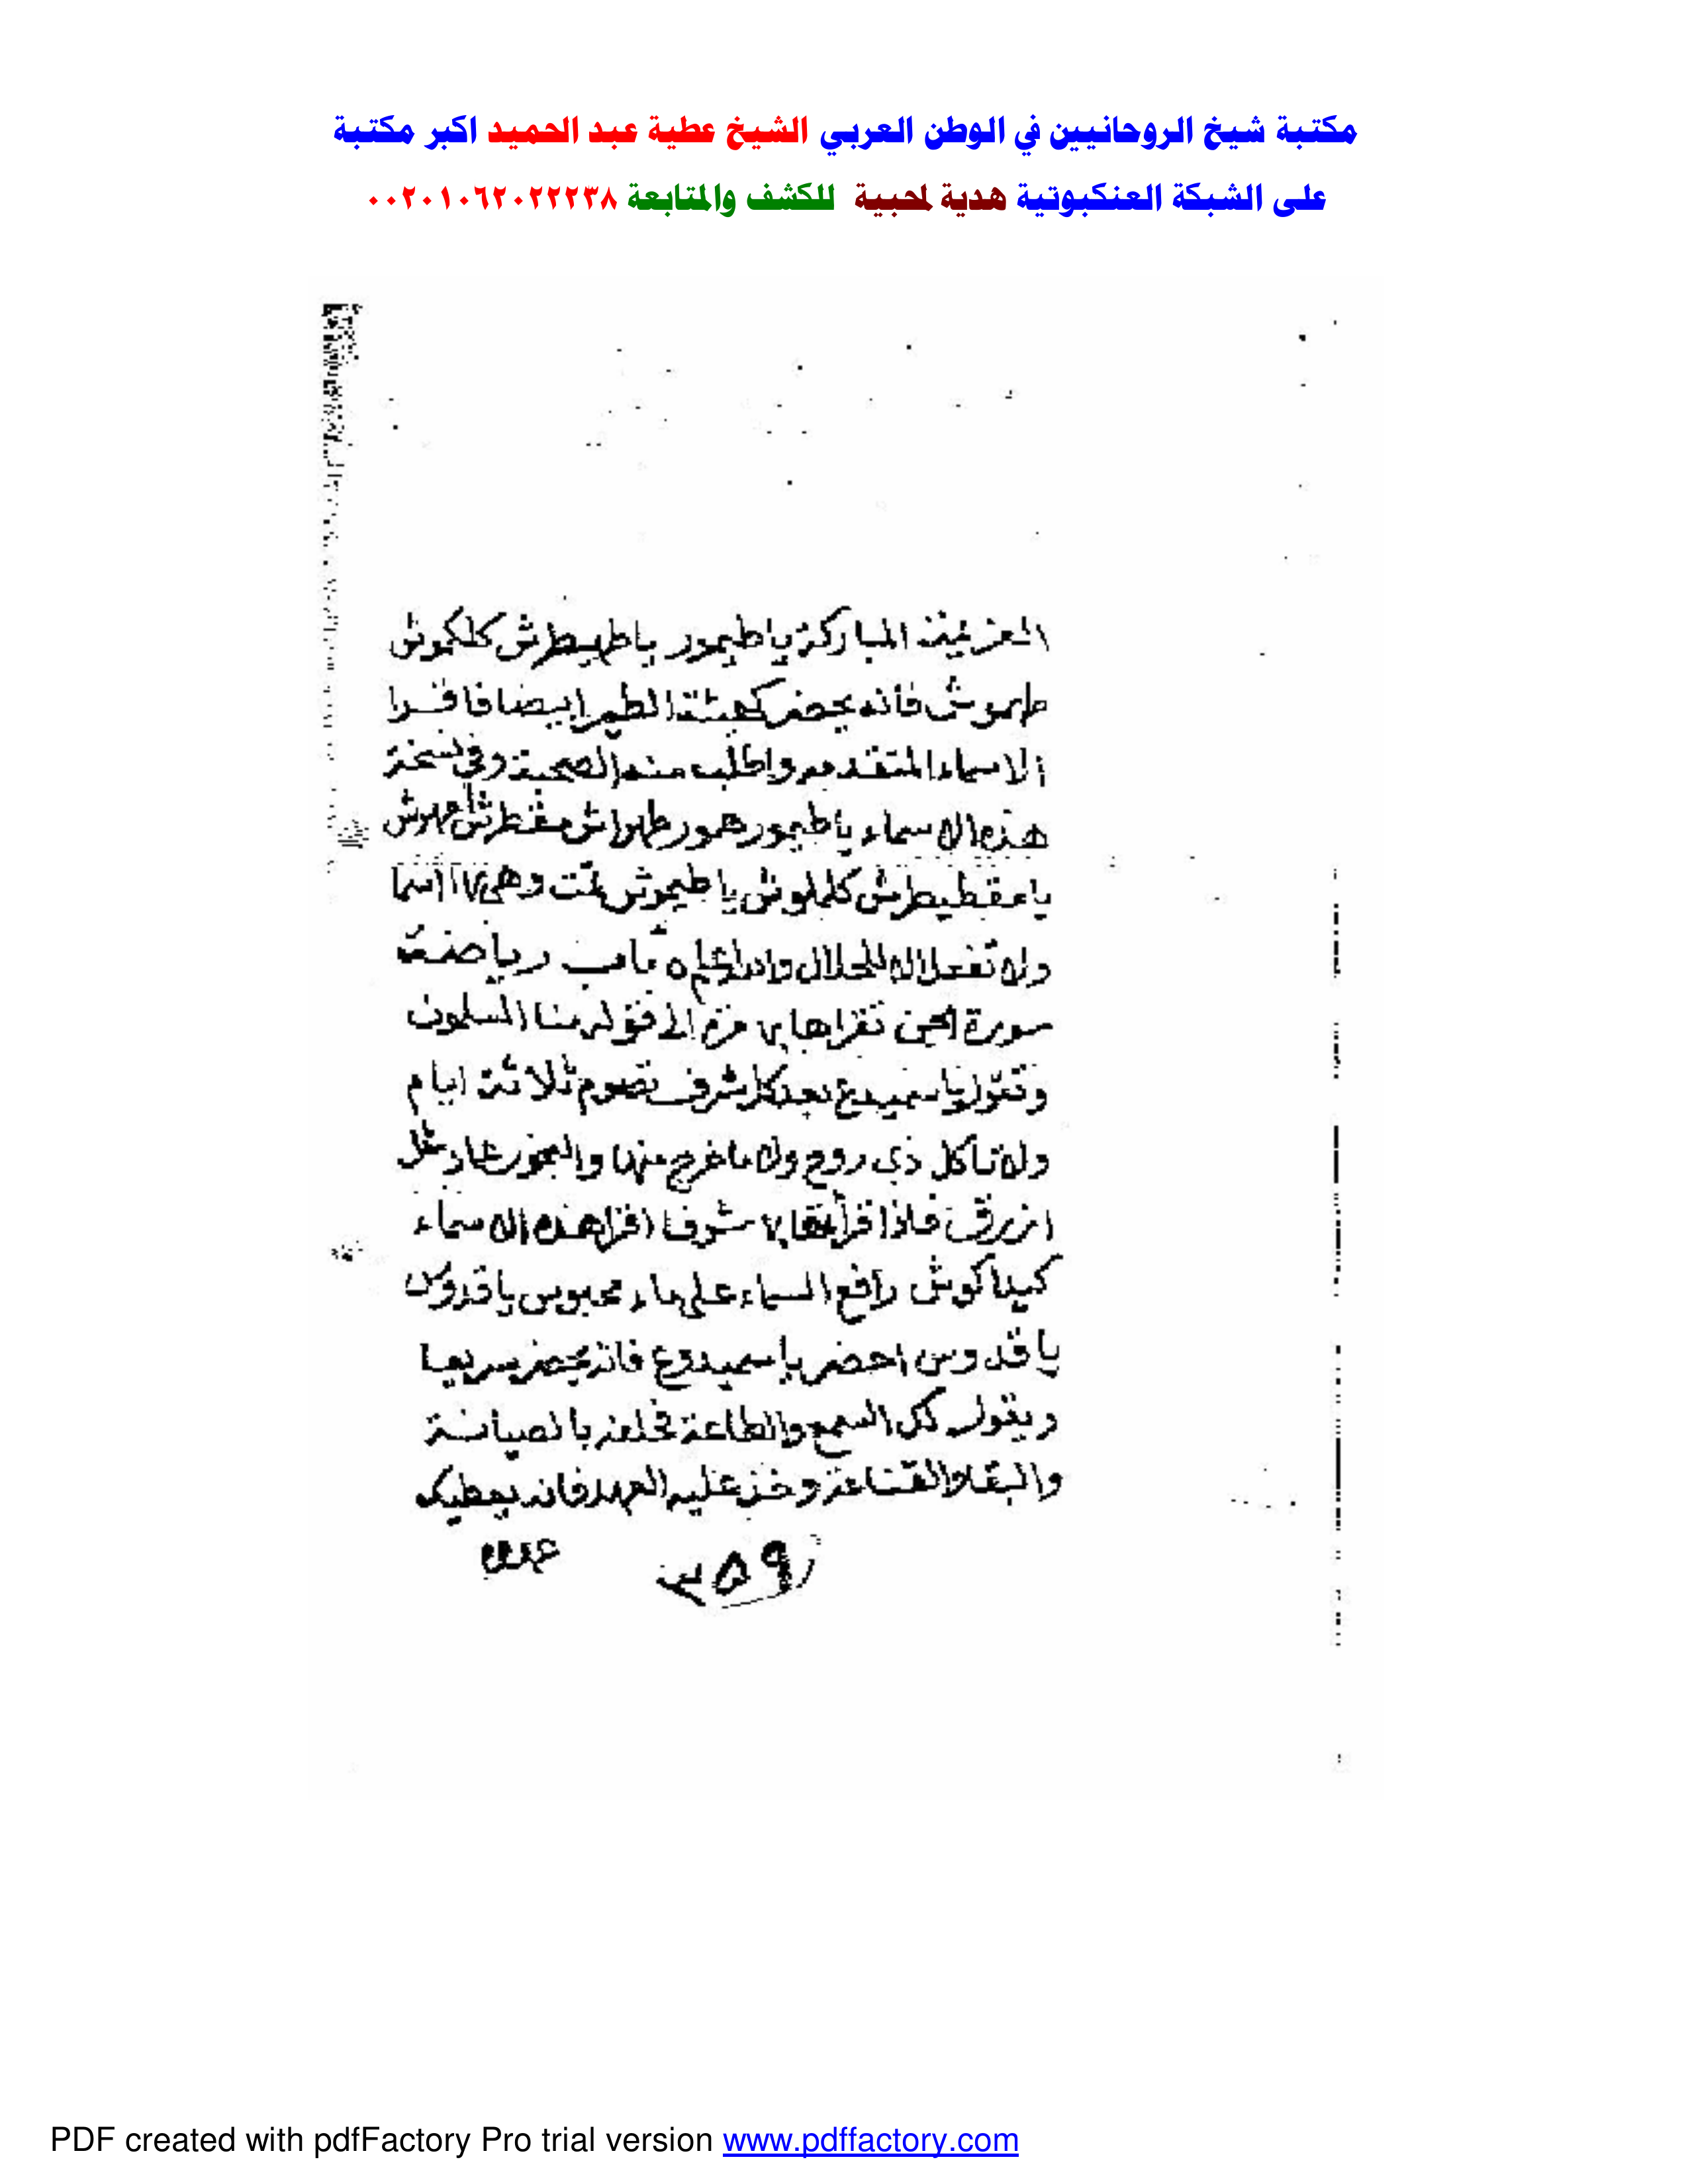 مكتبة شيخ الروحانيين في الوطن العربي الشيخ عطية عبد الحميد اكبر مكتبة
على الشبكة العنكبوتية هدية لمحبية للكشف والمتابعة ٠٠٢٠١٠٦٢٠٢٢٢٣٨
العزيمة المباركة ياطيمور ياطهيطرش كلكموش
طيموش فانه يحضر كهيئة الطير ابيضا فاقرا
الاسماء المتقدمه واطلب منه الصحبة وفي نسخة
هذه الاسماء ياطيمور هور طهواش
كلملوش ياطيموش تمت وهي اسما
ولا تفعل الا للحلال والله اعلم باب رياضت
سورة الجن تقراها مرة الى قوله منا المسلمون
وتقول ياسميدع بعد كل تصوم ثلاثة ايام
ولا تاكل ذي روح ولا ما خرج منها والبخور
ازرق فاذا قراتها اقرا هذه الاسماء
كيداكوش رافع السماء على ماء محبوس ياقدوس
ياقدوس احضر ياسميدع فانه يحضر سريعا
ويقول لك السمع والطاعة بالصيانة
والقناعة وخذ عليه العهد فانه يعطيك
٣٥٩